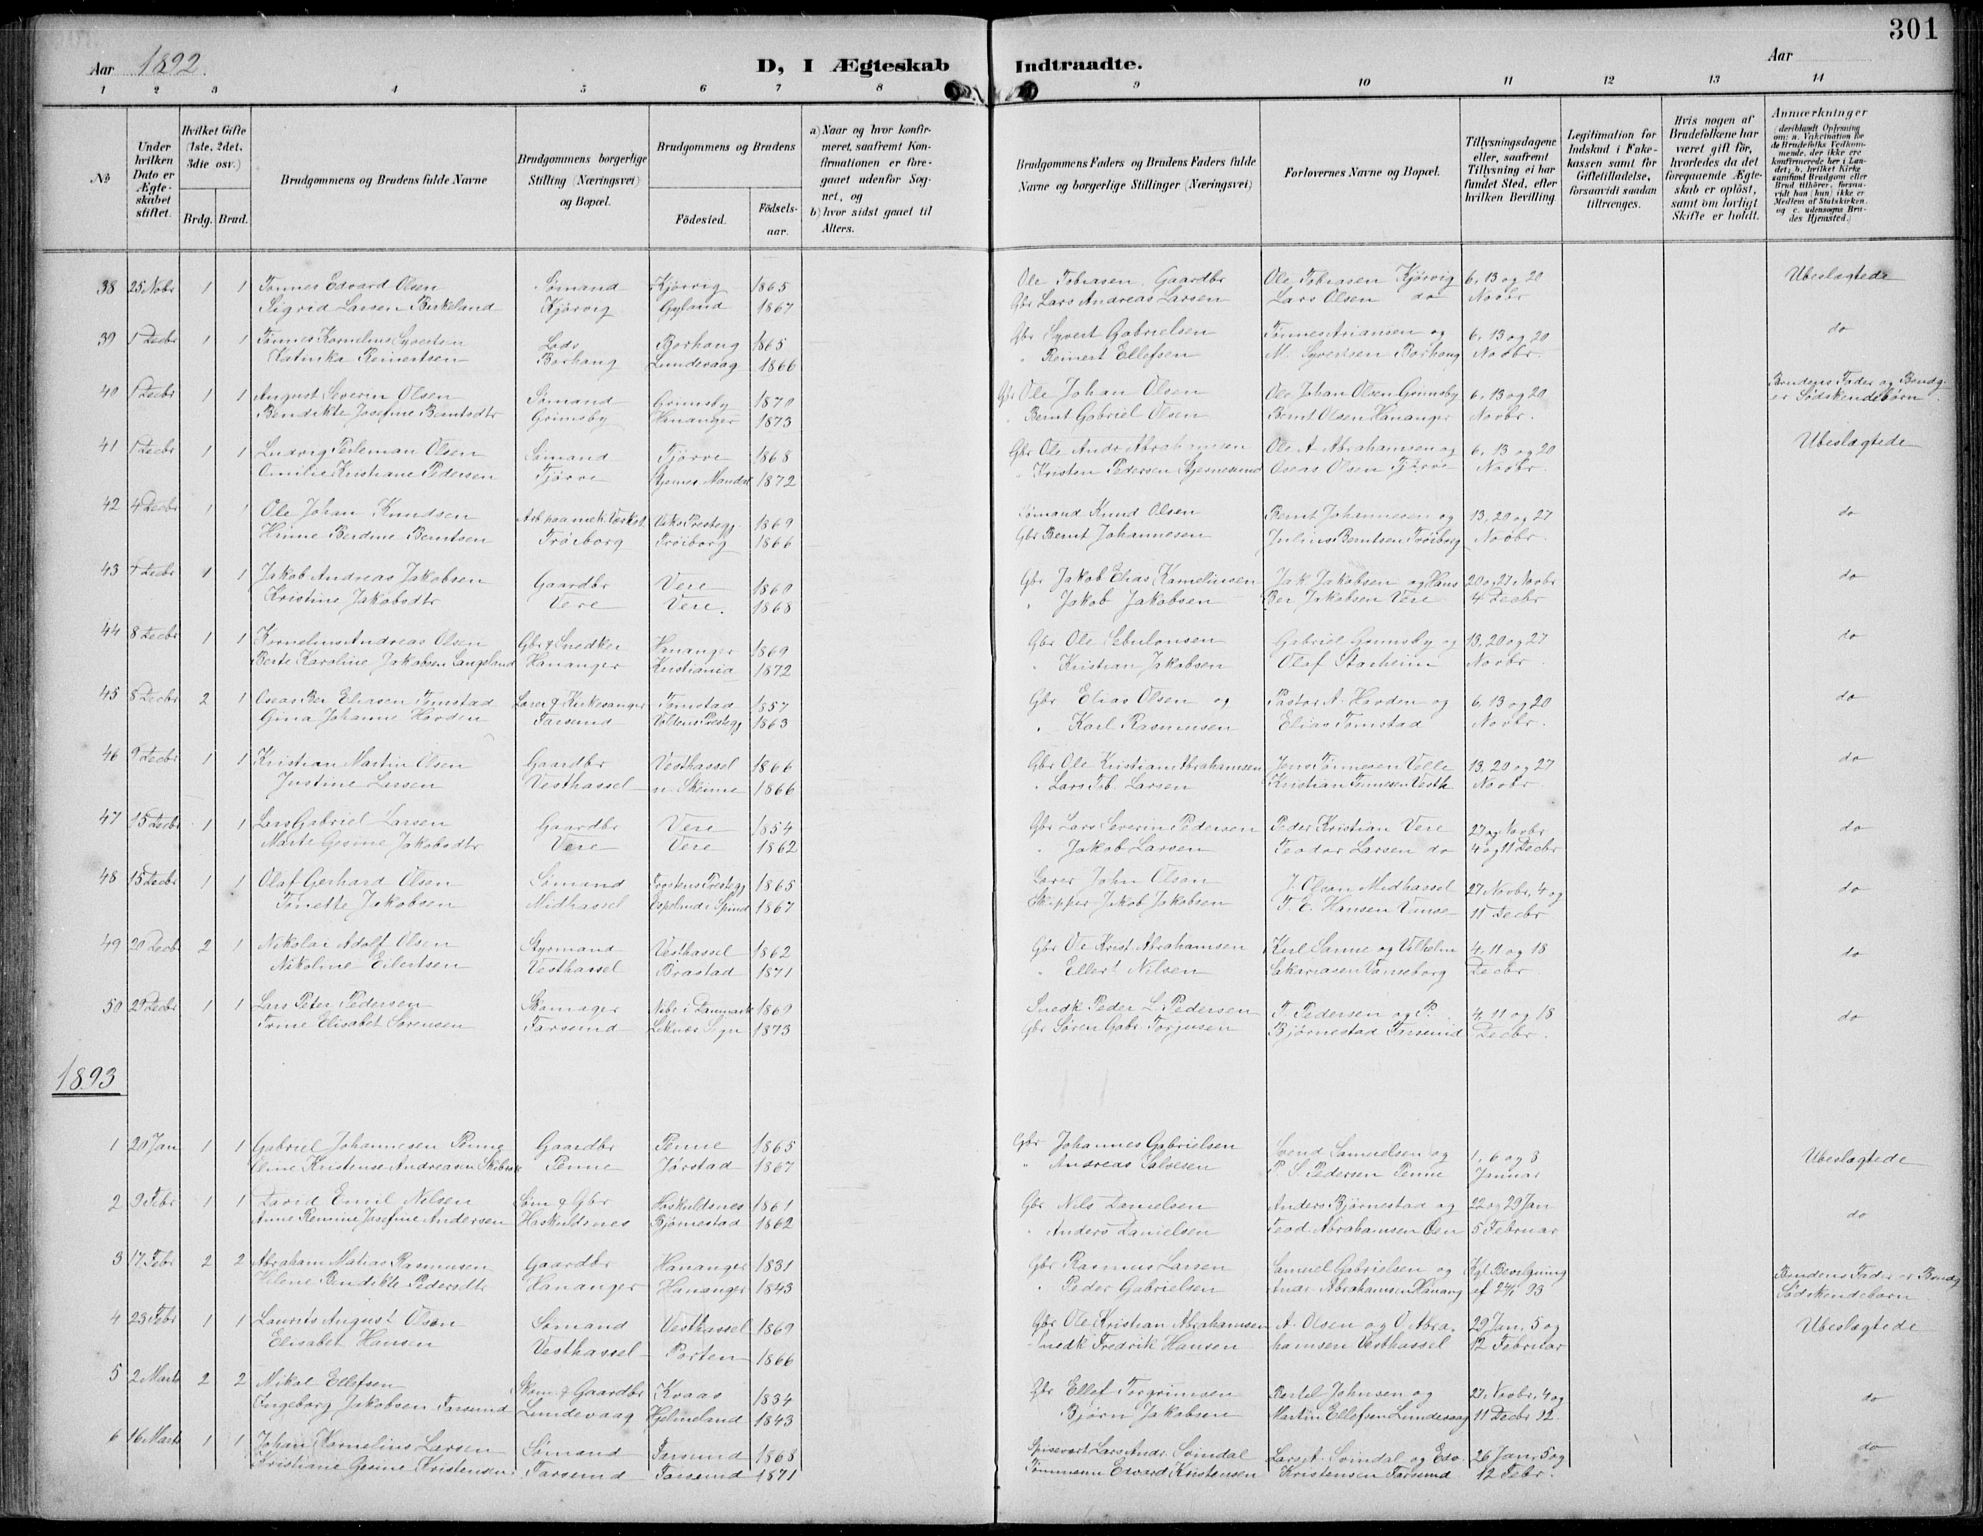 301
Aar 1892.
D, I Ægteskab Indtraadte.
Aar
1 2 3 4 5 6 7 8 9 10 11 12 13 14
No
Under hvilken Dato er Ægteskabet stiftet.
Hvilket Gifte (1ste, 2det, 3die osv.)
Brdg. Brud.
Brudgommens og Brudens fulde Navne
Brudgommens borgerlige Stilling (Næringsvei) og Bopæl.
Brudgommens og Brudens
Fødested. Fødselsaar.
a) Naar og hvor konfirmeret, saafremt Konfirmationen er foregaaet udenfor Sognet, og
b) hvor sidst gaaet til Alters.
Brudgommens Faders og Brudens Faders fulde Navne og borgerlige Stillinger (Næringsvei)
Forlovernes Navne og Bopæl.
Tillysningsdagene eller, saafremt Tillysning ei har fundet Sted, efter hvilken Bevilling
Legitimation for Indskud i Enkekassen samt for Giftetilladelse, forsaavidt saadan tiltrænges.
Hvis nogen af Brudefolkene har været gift før, hvorledes da det foregaaende Ægteskab er opløst, samt om lovligt Skifte er holdt.
Anmærkninger
38 25 Nobr 1 1 Tønnes Edvard Olsen Sømand Kjørvig 1865 Ole Tobiasen Gaardbr Ole Tobiasen Kjørvig 6, 13 og 20 Ubeslægtede
Sigrid Larsen Birkeland Kjørvig Gyland 1867 Gbr Lars Andreas Larsen Lars Olsen do Novbr
39 1 Decbr 1 1 Tønnes Kornelius Syvertsen Lods Borhaug 1865 Gbr Syvert Gabrielsen Tønnes Ariansen og 6, 13 og 20 do
Katinka Reinertsen Borhaug Lundevaag 1866 " Reinert Ellefsen M. Syvertsen Borhaug Novbr.
40 1 Decbr 1 1 August Severin Olsen Sømand Grimsby 1870 Gbr Ole Johan Olsen Ole Johan Olsen Grimsby 6, 13 og 20 Brudens Fader og Brudg.
Bendikte Josefine Berntsdtr Grimsby Hananger 1873 " Bernt Gabriel Olsen Bernt Olsen Hananger Novbr. er Sødskendebørn.
41 1 Decbr 1 1 Ludvig Perleman Olsen Sømand Tjørve 1868 Gbr Ole Andr Abrahamsen Ole A. Abrahamsen og 6, 13 og 20 Ubeslægtede
Emilie Kristiane Pedersen Tjørve Mandal 1872 " Kristen Pedersen Oseas Olsen Tjørve Novbr.
42 4 Decbr 1 1 Ole Johan Knudsen 1869 Sømand Knud Olsen Bernt Johannesen og 13, 20 og 27 do
Berdine Berntsen Frøiborg Frøiborg 1866 Gbr Bernt Johannesen Julius Berntsen Frøiborg Novbr.
43 7 Decbr 1 1 Jakob Andreas Jakobsen Gaardbr Vere 1860 Gbr Jakob Elias Kornelinsen Jak Jakobsen og Hans 20 og 27 Novbr do
Kristine Jakobsdtr Vere Vere. 1868 " Jakob Jakobsen Ber Jakobsen Vere 4 Decbr
44 8 Decbr 1 1 Kornelius Andreas Olsen Gbr & Snedker Hananger 1869 Gbr Ole Sebulonsen Gabriel Grimsby og 13, 20 og 27 do
Berte Karoline Jakobsen Langeland Hananger Kristiania 1872 " Kristian Jakobsen Olaf Starheim Novbr.
45 8 Decbr 2 1 Oseas Ber Eliasen Tomstad Lærer & Kirkesanger Tomstad 1857 Gbr Elias Olsen og Pastor A. Hovden og 6, 13 og 20 do
Gina Johanne Hovden Farsund Voldens Prestegj 1863 " Karl Rasmusen Elias Tomstad Novbr.
46 9 Decbr 1 1 Kristian Martin Olsen Gaardbr Vesthassel 1866 Gbr Ole Kristian Abrahamsen Jens Tønnesen Velle 13, 20 og 27 do
Justine Larsen Vesthassel n. Skeime 1866 " Lars Tob. Larsen Kristian Tønnesen Vesth Novbr
47 15 Decbr 1 1 Lars Gabriel Larsen Gaardbr Vere 1854 Gbr Lars Severin Pedersen Peder Kristian Vere 27 og Novbr do
Marte Gesine Jakobsdtr Vere Vere 1862 " Jakob Larsen Teodor Larsen do 4 og 11 Decbr
48 15 Decbr 1 1 Olaf Gerhard Olsen Sømand 1865 Lærer John Olsen J. Olsen Midhassel 27 Novbr, 4 og do
Tonette Jakobsen Midhassel Espelund i Spind 1867 Skipper Jakob Jakobsen T. E. Hansen Vanse 11 Decbr
49 20 Decbr 2 1 Nikolai Adolf Olsen Styrmand Vesthassel 1862 Gbr Ole Krist. Abrahamsen Karl Sanne og Vilhelm 4, 11 og 18 do
Nikoline Eilertsen Vesthassel Brastad 1871 " Ellert Nilsen Sakariasen Vanseborg Decbr
50 29 Decbr 1 1 Lars Peter Pedersen Skomager Nebr i Danmark 1869 Snedk Peder L. Pedersen P. Pedersen og P. 4, 11 og 18 do
Trine Elisabet Sørensen Farsund Leknæs Sgn 1873 Gbr Søren Gabr Torjusen Bjørnestad Farsund Decbr.
1893
1 20 Jan 1 1 Gabriel Johannesen Penne Gaardbr Penne 1865 Gbr Johannes Gabrielsen Svend Samuelsen og 1, 6 og 8 Ubeslægtede
Kristense Andreasen Penne Jørstad 1867 " Andreas Salvesen P. S. Pedersen Penne Januar
2 9 Febr 1 1 David Emil Nilsen Søm & Gbr Haskuldsnes 1861 Gbr Nils Danielsen Anders Bjørnestad og 22 og 29 Jan do
Anne Remine Josefine Andersen Haskuldsnes Bjørnestad 1862 " Anders Danielsen Teod Abrahamsen Oen 5 Februar
3 17 Febr 2 2 Abraham Matias Rasmusen Gaardbr Hananger 1831 Gbr Rasmus Larsen Samuel Gabrielsen og Kgl Bevilgning Brudens Fader er Brudg
Helene Bendikte Pedersdtr Hananger Hananger 1843 " Peder Gabrielsen Andr Abrahamsen Hanang af 24/1 93 Sødskendebarn
4 23 Febr 1 1 Laurits August Olsen Sømand Vesthassel 1869 Gbr Ole Kristian Abrahamsen A. Olsen og O. Abra, 29 Jan, 5 og Ubeslægtede
Elisabet Hansen Vesthassel Porten 1866 Snedk Fredrik Hansen hamsen Vesthassel 12 Februar
5 2 Marts 2 2 Mikal Ellefsen Skom. & Gaardbr Kvaas 1834 Gbr Ellef Torgrimsen Bertel Johnsen og 27 Novbr, 4 og do
Ingeborg Jakobsen Farsund Lundevaag Helmeland 1843 Bjørn Jakobsen Martin Ellefsen Lundevaag 11 Decbr 92
6 16 Marts 1 1 Johan Kornelius Larsen Sømand Farsund 1868 Spisevært Lars Andr. Svindal Lars A. Svindal og Edv 26 Jan, 5 og do
Kristiane Gesine Kristensen Farsund Farsund 1871 Tømmerm Edvard Kristensen Kristensen Farsund 12 Febr.